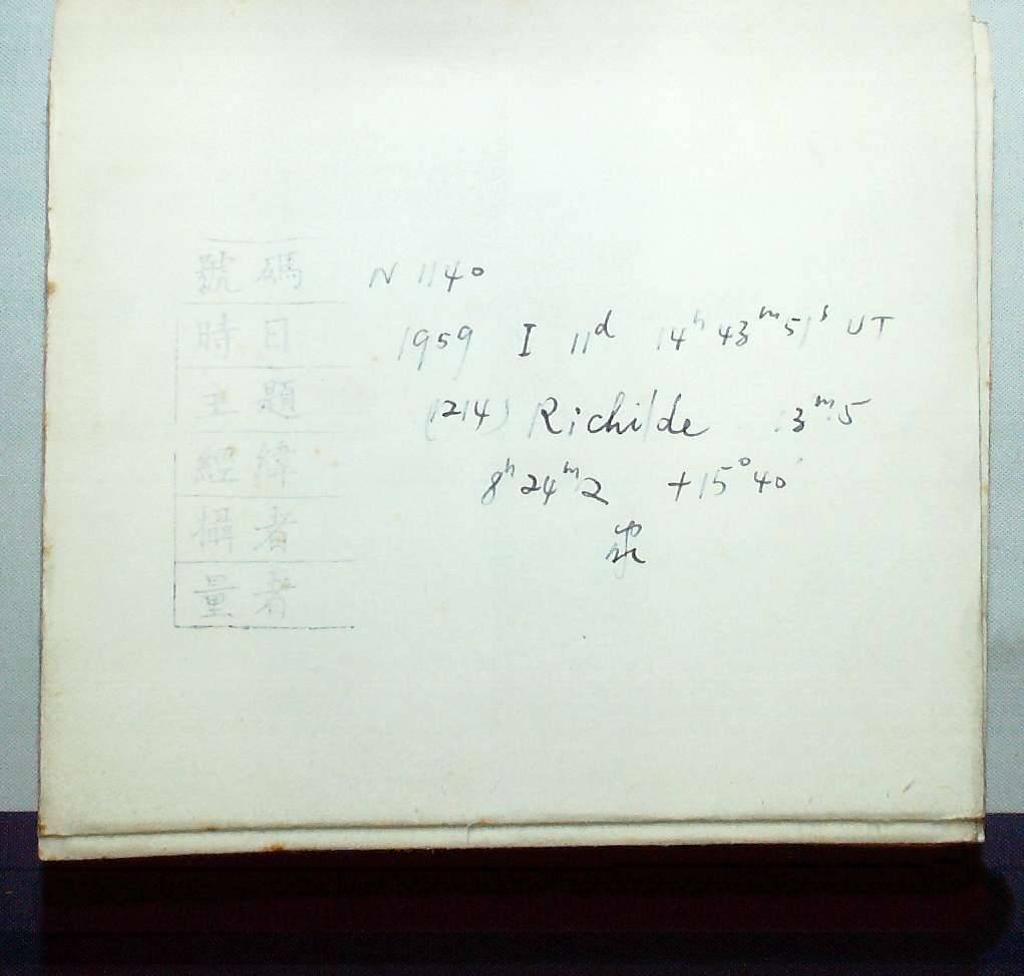 號碼 N 1140
時日 1959 I 11ᵈ 14ʰ 43ᵐ 51ˢ UT
主題 (1214) Richilde 13ᵐ.5
經緯 8ʰ 24ᵐ.2 +15°40'
攝者
量者